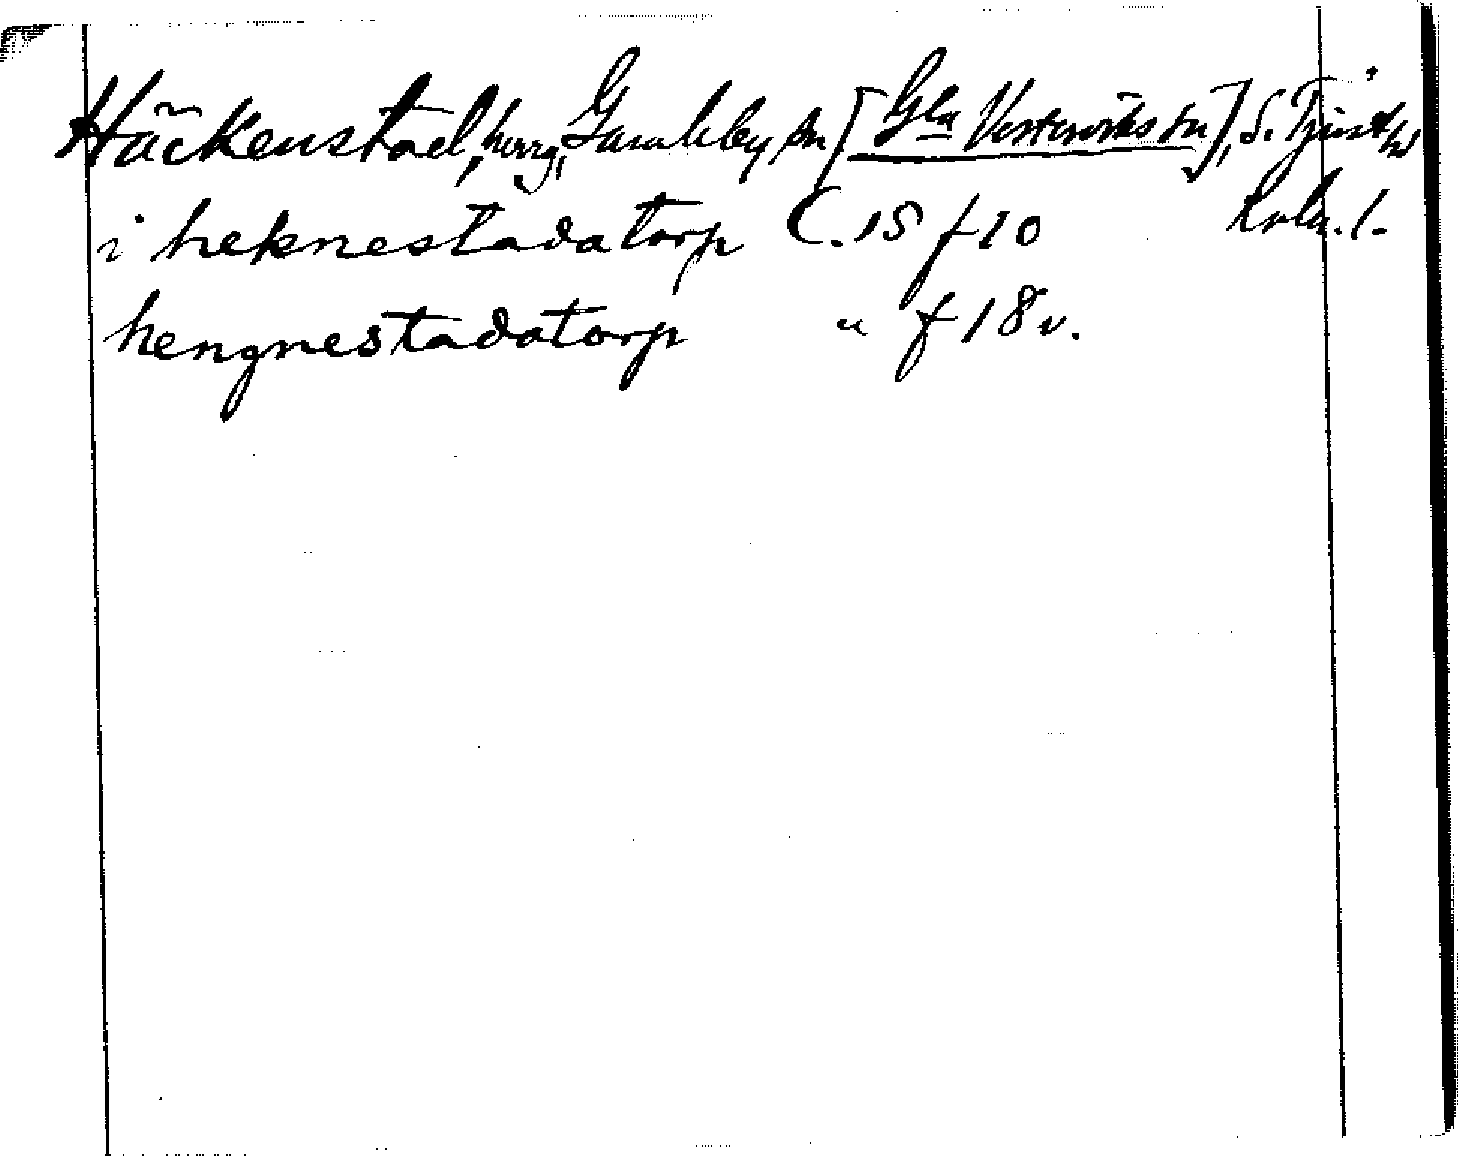 Häckenstad, herrg, Gamleby sn [Gla Vesterviks sn], S. Tjust hd
Kalm. l.
i heknestadatorp C. 15 f 10
hengnestadatorp " f 18 v.